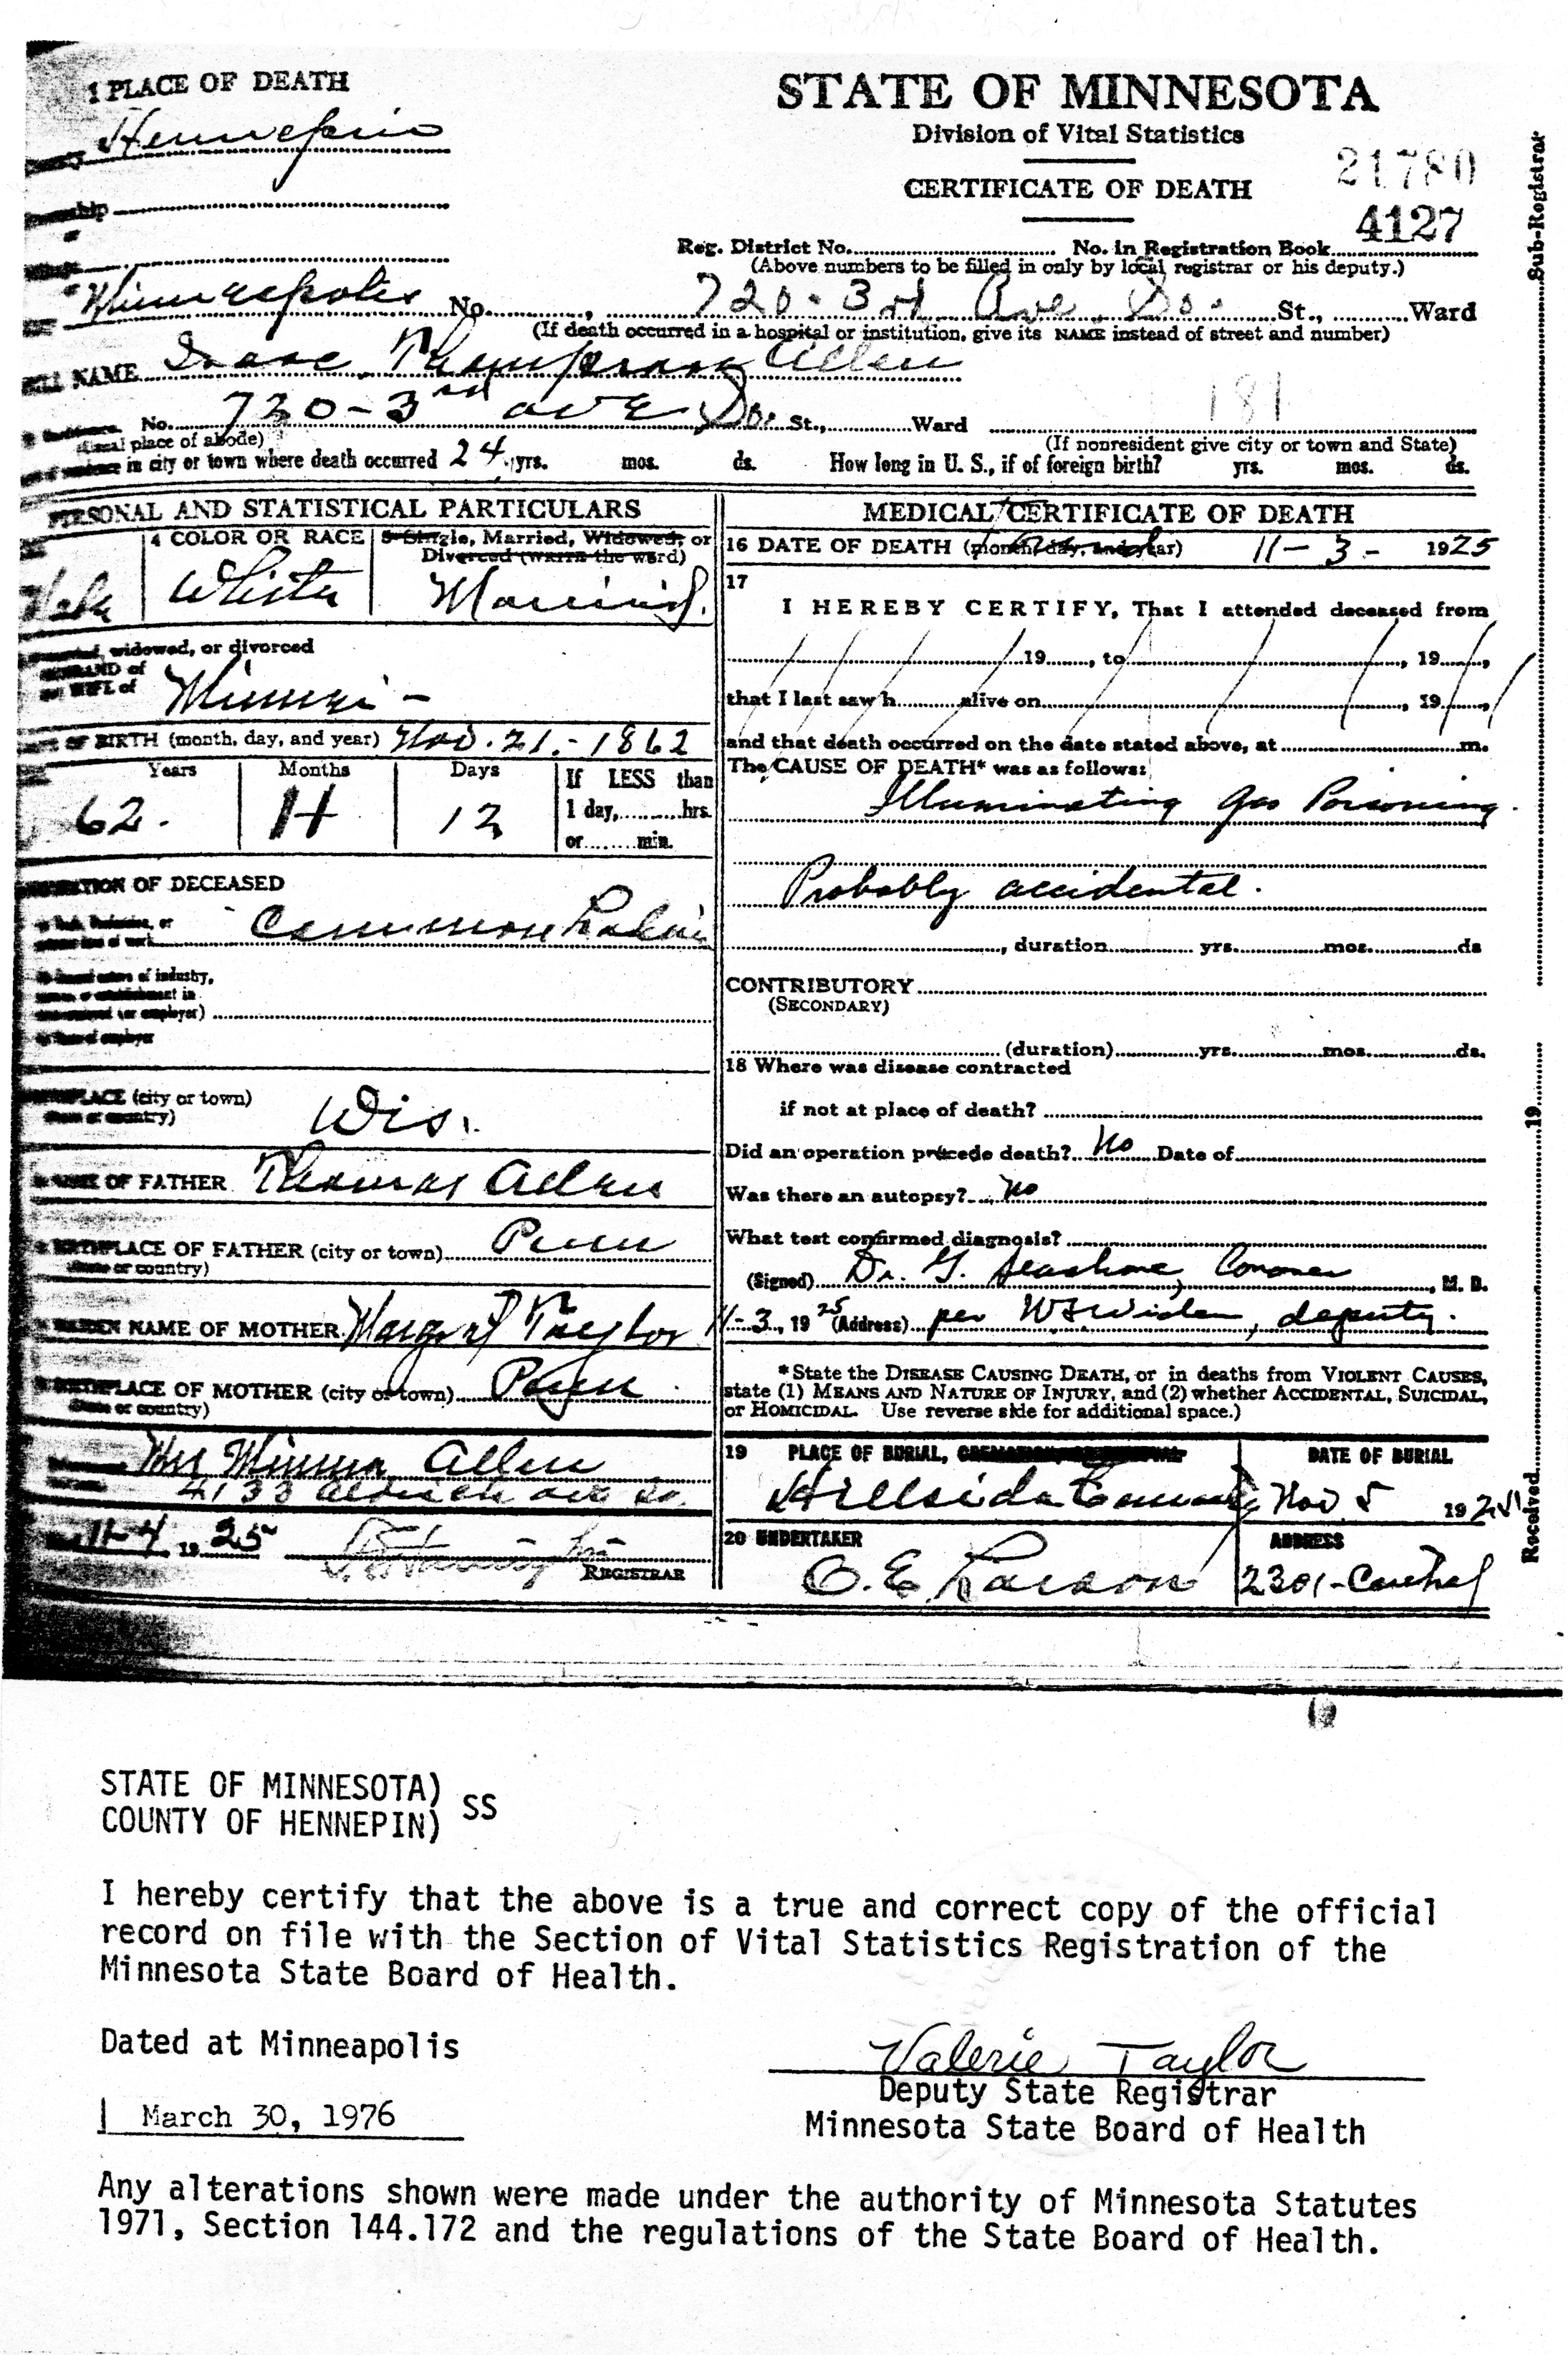 1 PLACE OF DEATH
Hennepin
STATE OF MINNESOTA
Division of Vital Statistics
CERTIFICATE OF DEATH
21780
4127
Reg. District No. No. in Registration Book
(Above numbers to be filled in only by local registrar or his deputy.)
Minneapolis No. , 720-3rd Ave. So. St., Ward
(If death occurred in a hospital or institution, give its NAME instead of street and number)
NAME Isaac Thompson Allen
No. 720-3rd ave So. St., Ward
181
(Usual place of abode) (If nonresident give city or town and State)
in city or town where death occurred 24 yrs. mos. ds. How long in U. S., if of foreign birth? yrs. mos. ds.
PERSONAL AND STATISTICAL PARTICULARS
4 COLOR OR RACE
5 Single, Married, Widowed, or
Divorced (WRITE the word)
Male White Married.
widowed, or divorced
HUSBAND of
WIFE of
Minnie -
DATE OF BIRTH (month, day, and year) Nov. 21.-1862
Years Months Days If LESS than
1 day, hrs.
or min.
62. 11 12
OCCUPATION OF DECEASED
Common Labor
of industry,
or establishment in
(or employer)
BIRTHPLACE (city or town)
(State or country)
Wis.
NAME OF FATHER Thomas Allen
BIRTHPLACE OF FATHER (city or town) Penn
(State or country)
MAIDEN NAME OF MOTHER Margret Taylor
BIRTHPLACE OF MOTHER (city or town) Penn
(State or country)
Mrs Minnie Allen
4133 Aldrich ave So.
11-4 19 25
REGISTRAR
MEDICAL CERTIFICATE OF DEATH
16 DATE OF DEATH (month, day, and year) 11-3- 1925
17
I HEREBY CERTIFY, That I attended deceased from
19 , to , 19 ,
that I last saw h alive on , 19 ,
and that death occurred on the date stated above, at m.
The CAUSE OF DEATH* was as follows:
Illuminating Gas Poisoning.
Probably accidental.
, duration yrs. mos. ds
CONTRIBUTORY
(SECONDARY)
(duration) yrs. mos. ds.
18 Where was disease contracted
if not at place of death?
Did an operation precede death? No Date of
Was there an autopsy? No
What test confirmed diagnosis?
(Signed) Dr. G. Seashore, Coroner , M. D.
11-3, 19 25 (Address) per , deputy.
*State the DISEASE CAUSING DEATH, or in deaths from VIOLENT CAUSES,
state (1) MEANS AND NATURE OF INJURY, and (2) whether ACCIDENTAL, SUICIDAL,
or HOMICIDAL. Use reverse side for additional space.)
19 PLACE OF BURIAL, DATE OF BURIAL
Hillside Nov 5 1925
20 UNDERTAKER ADDRESS
O. E. Larson 2301-Central
Sub-Registrar
Received 19
STATE OF MINNESOTA)
COUNTY OF HENNEPIN) SS
I hereby certify that the above is a true and correct copy of the official
record on file with the Section of Vital Statistics Registration of the
Minnesota State Board of Health.
Dated at Minneapolis
Valerie Taylor
Deputy State Registrar
Minnesota State Board of Health
March 30, 1976
Any alterations shown were made under the authority of Minnesota Statutes
1971, Section 144.172 and the regulations of the State Board of Health.